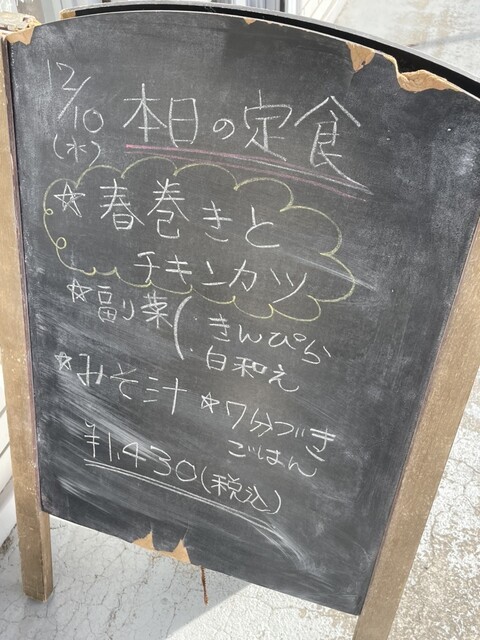 12/10
(水)
本日の定食
☆ 春巻きと
チキンカツ
☆副菜(・きんぴら
・白和え
☆みそ汁 ☆7分づき
ごはん
¥1,430(税込)